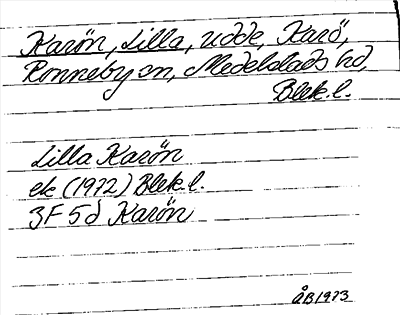 Karön, Lilla, udde, Karö,
Ronneby sn, Medelstads hd,
Blek.l.
Lilla Karön
ek (1972) Blek.l.
3F 5d Karön
ÅB 1973